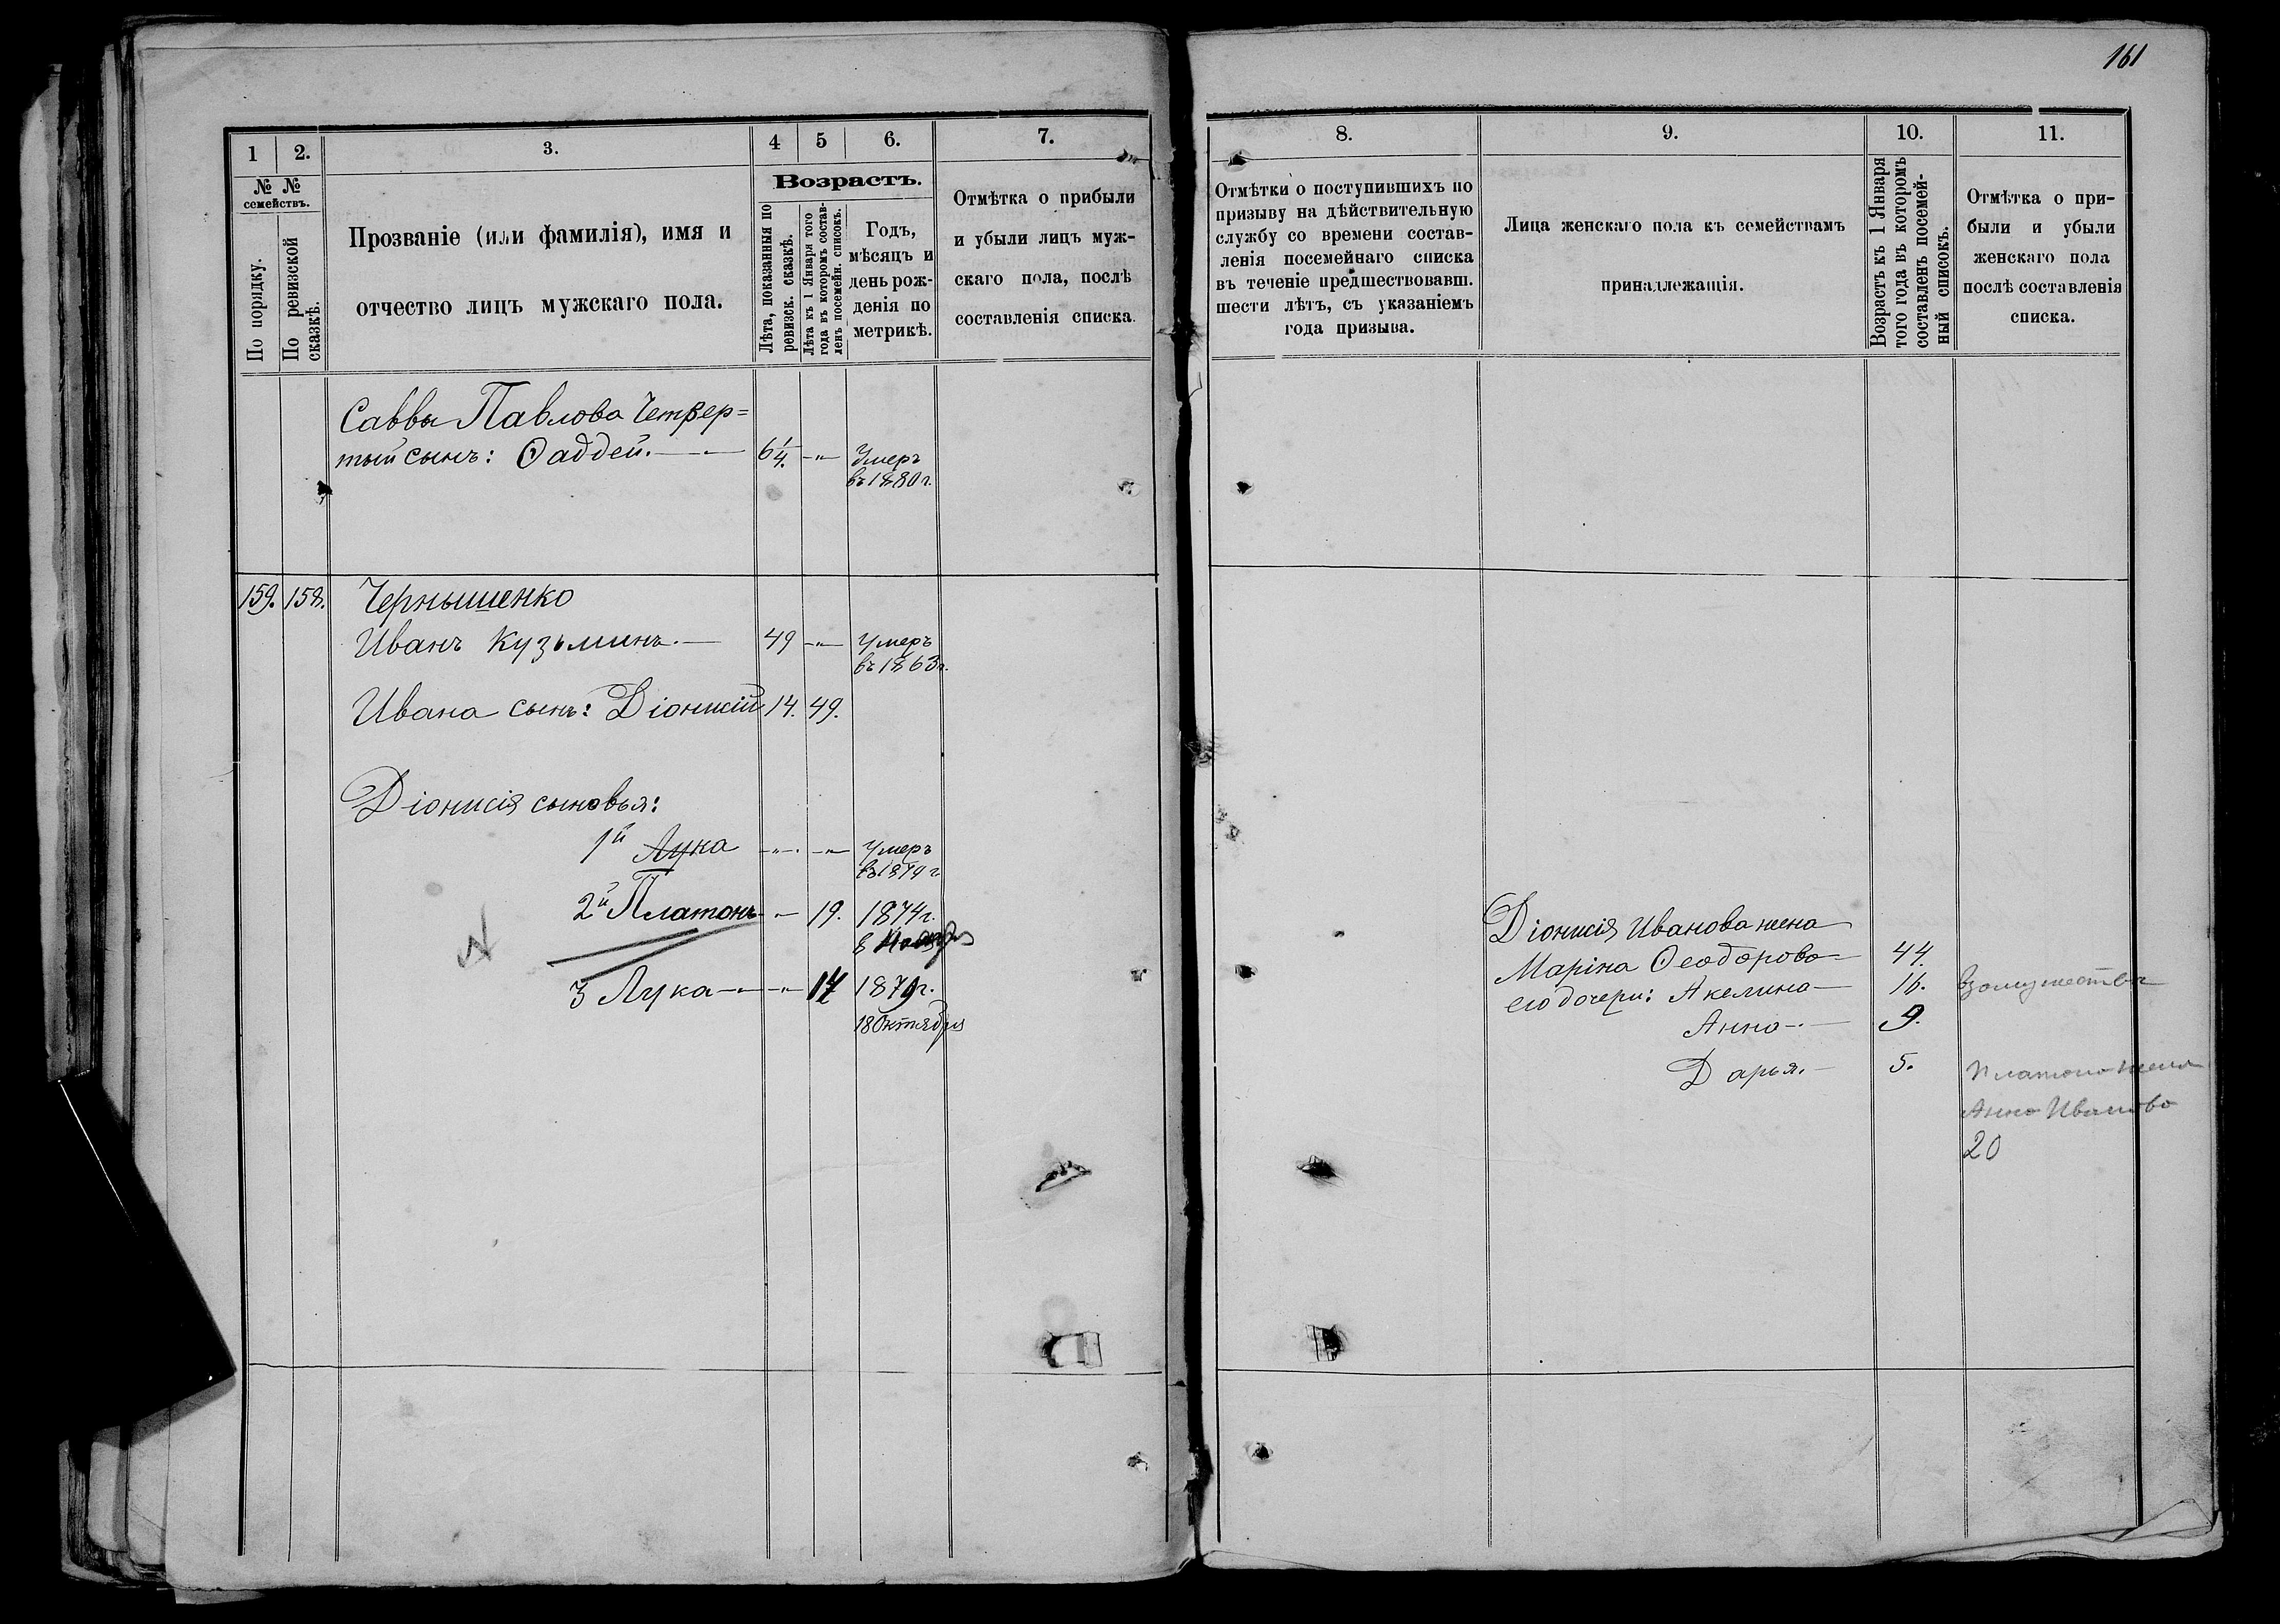 161
1
2.
3.
4
5
6.
7.
№ №
семействъ.
По порядку.
По ревизской
сказкѣ.
Прозваніе (или фамилія), имя и
отчество лицъ мужскаго пола.
Возрастъ.
Лѣта, показанныя по
ревизск. сказкѣ.
Лѣта къ 1 Января того
года въ которомъ состав-
ленъ посемейн. списокъ.
Годъ,
мѣсяцъ и
день рож-
денія по
метрикѣ.
Отмѣтка о прибыли
и убыли лицъ муж-
скаго пола, послѣ
составленія списка.
Саввы Павлова Четвер=
тый сынъ: Ѳаддей. 6 1/4. -"- Умеръ
въ 1880 г.
159. 158. Чернышенко
Иванъ Кузьминъ. 49 -"- Умеръ
въ 1863 г.
Ивана сынъ: Діонисій 14. 49.
Діонисія сыновья:
1й Лука -"- -"- Умеръ
въ г.
2й Платонъ -"- 19. 1874 г.
8
3 Лука -"- 1879 г.
18 Октября
8.
9.
10.
11.
Отмѣтки о поступившихъ по
призыву на дѣйствительную
службу со времени состав-
ленія посемейнаго списка
въ теченіе предшествовавш.
шести лѣтъ, съ указаніемъ
года призыва.
Лица женскаго пола къ семействамъ
принадлежащія.
Возрастъ къ 1 Января
того года въ которомъ
составленъ посемей-
ный списокъ.
Отмѣтка о при-
были и убыли
женскаго пола
послѣ составленія
списка.
Діонисія Иванова жена
Маріна Ѳеодорова 44.
его дочери: Акелина 16. Взамужествѣ
Анна 9.
Дарья. 5. Платона жена
Анна Иванова
20